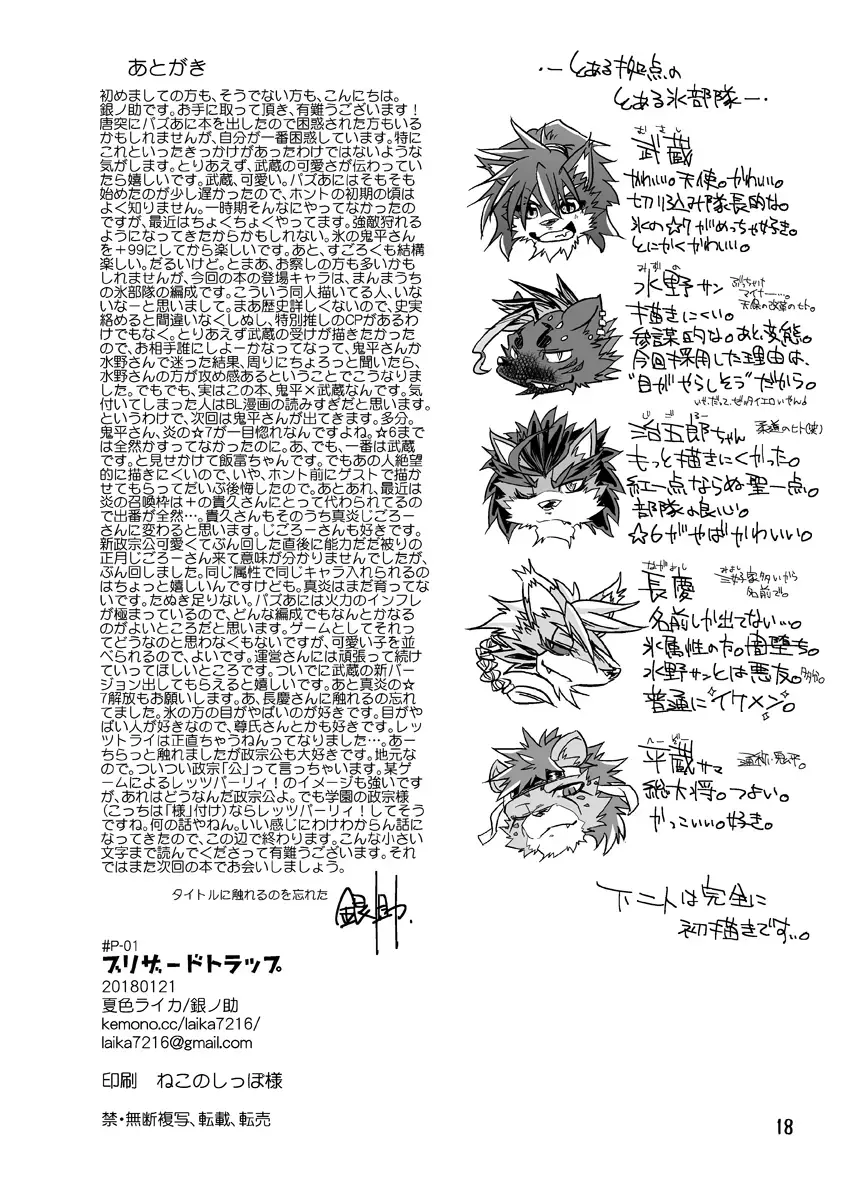 あとがき
初めましての方も、そうでない方も、こんにちは。
銀ノ助です。お手に取って頂き、有難うございます！
唐突にパズあに本を出したので困惑された方もいる
かもしれませんが、自分が一番困惑しています。特に
これといったきっかけがあったわけではないような
気がします。とりあえず、武蔵の可愛さが伝わってい
たら嬉しいです。武蔵、可愛い。パズあにはそもそも
始めたのが少し遅かったので、ホントの初期の頃は
よく知りません。一時期そんなにやってなかったの
ですが、最近はちょくちょくやってます。強敵狩れる
ようになってきたからかもしれない。氷の鬼平さん
を＋99にしてから楽しいです。あと、すごろくも結構
楽しい。だるいけど。とまあ、お察しの方も多いかも
しれませんが、今回の本の登場キャラは、まんまうち
の氷部隊の編成です。こういう同人描いてる人、いな
いなーと思いまして。まあ歴史詳しくないので、史実
絡めると間違いなくしぬし、特別推しのCPがあるわ
けでもなく。とりあえず武蔵の受けが描きたかった
ので、お相手誰にしよーかなってなって、鬼平さんか
水野さんで迷った結果、周りにちょろっと聞いたら、
水野さんの方が攻め感あるということでこうなりま
した。でもでも、実はこの本、鬼平×武蔵なんです。気
付いてしまった人はBL漫画の読みすぎだと思います。
というわけで、次回は鬼平さんが出てきます。多分。
鬼平さん、炎の☆7が一目惚れなんですよね。☆6まで
は全然かすってなかったのに。あ、でも、一番は武蔵
です。と見せかけて飯富ちゃんです。でもあの人絶望
的に描きにくいので、いや、ホント前にゲストで描か
せてもらってだいぶ後悔したので。あとあれ、最近は
炎の召喚枠は＋の貴久さんにとって代わられてるの
で出番が全然…。貴久さんもそのうち真炎じごろー
さんに変わると思います。じごろーさんも好きです。
新政宗公可愛くてぶん回した直後に能力だだ被りの
正月じごろーさん来て意味が分かりませんでしたが、
ぶん回しました。同じ属性で同じキャラ入れられるの
はちょっと嬉しいんですけども。真炎はまだ育ってな
いです。たぬき足りない。パズあには火力のインフレ
が極まっているので、どんな編成でもなんとかなる
のがよいところだと思います。ゲームとしてそれっ
てどうなのと思わなくもないですが、可愛い子を並
べられるので、よいです。運営さんには頑張って続け
ていってほしいところです。ついでに武蔵の新バー
ジョン出してもらえると嬉しいです。あと真炎の☆
7解放もお願いします。あ、長慶さんに触れるの忘れ
てました。氷の方の目がやばいのが好きです。目がや
ばい人が好きなので、尊氏さんとかも好きです。レッ
ツトライは正直ちゃうねんってなりました…。あー
ちらっと触れましたが政宗公も大好きです。地元な
ので。ついつい政宗「公」って言っちゃいます。某ゲ
ームによるレッツパーリィ！のイメージも強いです
が、あれはどうなんだ政宗公よ。でも学園の政宗様
（こっちは「様」付け）ならレッツパーリィ！してそう
ですね。何の話やねん。いい感じにわけわからん話に
なってきたので、この辺で終わります。こんな小さい
文字まで読んでくださって有難うございます。それ
ではまた次回の本でお会いしましょう。
タイトルに触れるのを忘れた
銀ノ助.
#P-01
ブリザードトラップ
20180121
夏色ライカ/銀ノ助
kemono.cc/laika7216/
laika7216@gmail.com
印刷　ねこのしっぽ様
禁・無断複写、転載、転売
・―とある拠点の
とある氷部隊―・
むさし
武蔵
かわいい。天使。かわいい。
切り込み隊長的な。
氷の☆7がめっちゃ好き。
とにかくかわいい。
みずの
水野サン
ぶっちゃけ
マイナー…。
天保の改革のヒト。
描きにくい。
参謀的な。あと、変態。
今回採用した理由は、
"目がやらしそう"だから。
じごろー
治五郎ちゃん
柔道のヒト(笑)
もっと描きにくかった。
紅一点ならぬ聖一点。
部隊の良心。
☆6がやばかわいい。
ながよし
長慶
みよし
三好家多いから
名前で。
名前しか出てない…。
氷属性の方。闇堕ち。
水野サンとは悪友。多分。
普通にイケメン。
へーぞー
平蔵サマ
通称・鬼平。
総大将。つよい。
かっこいい。好き。
下二人は完全に
初描きです…。
18